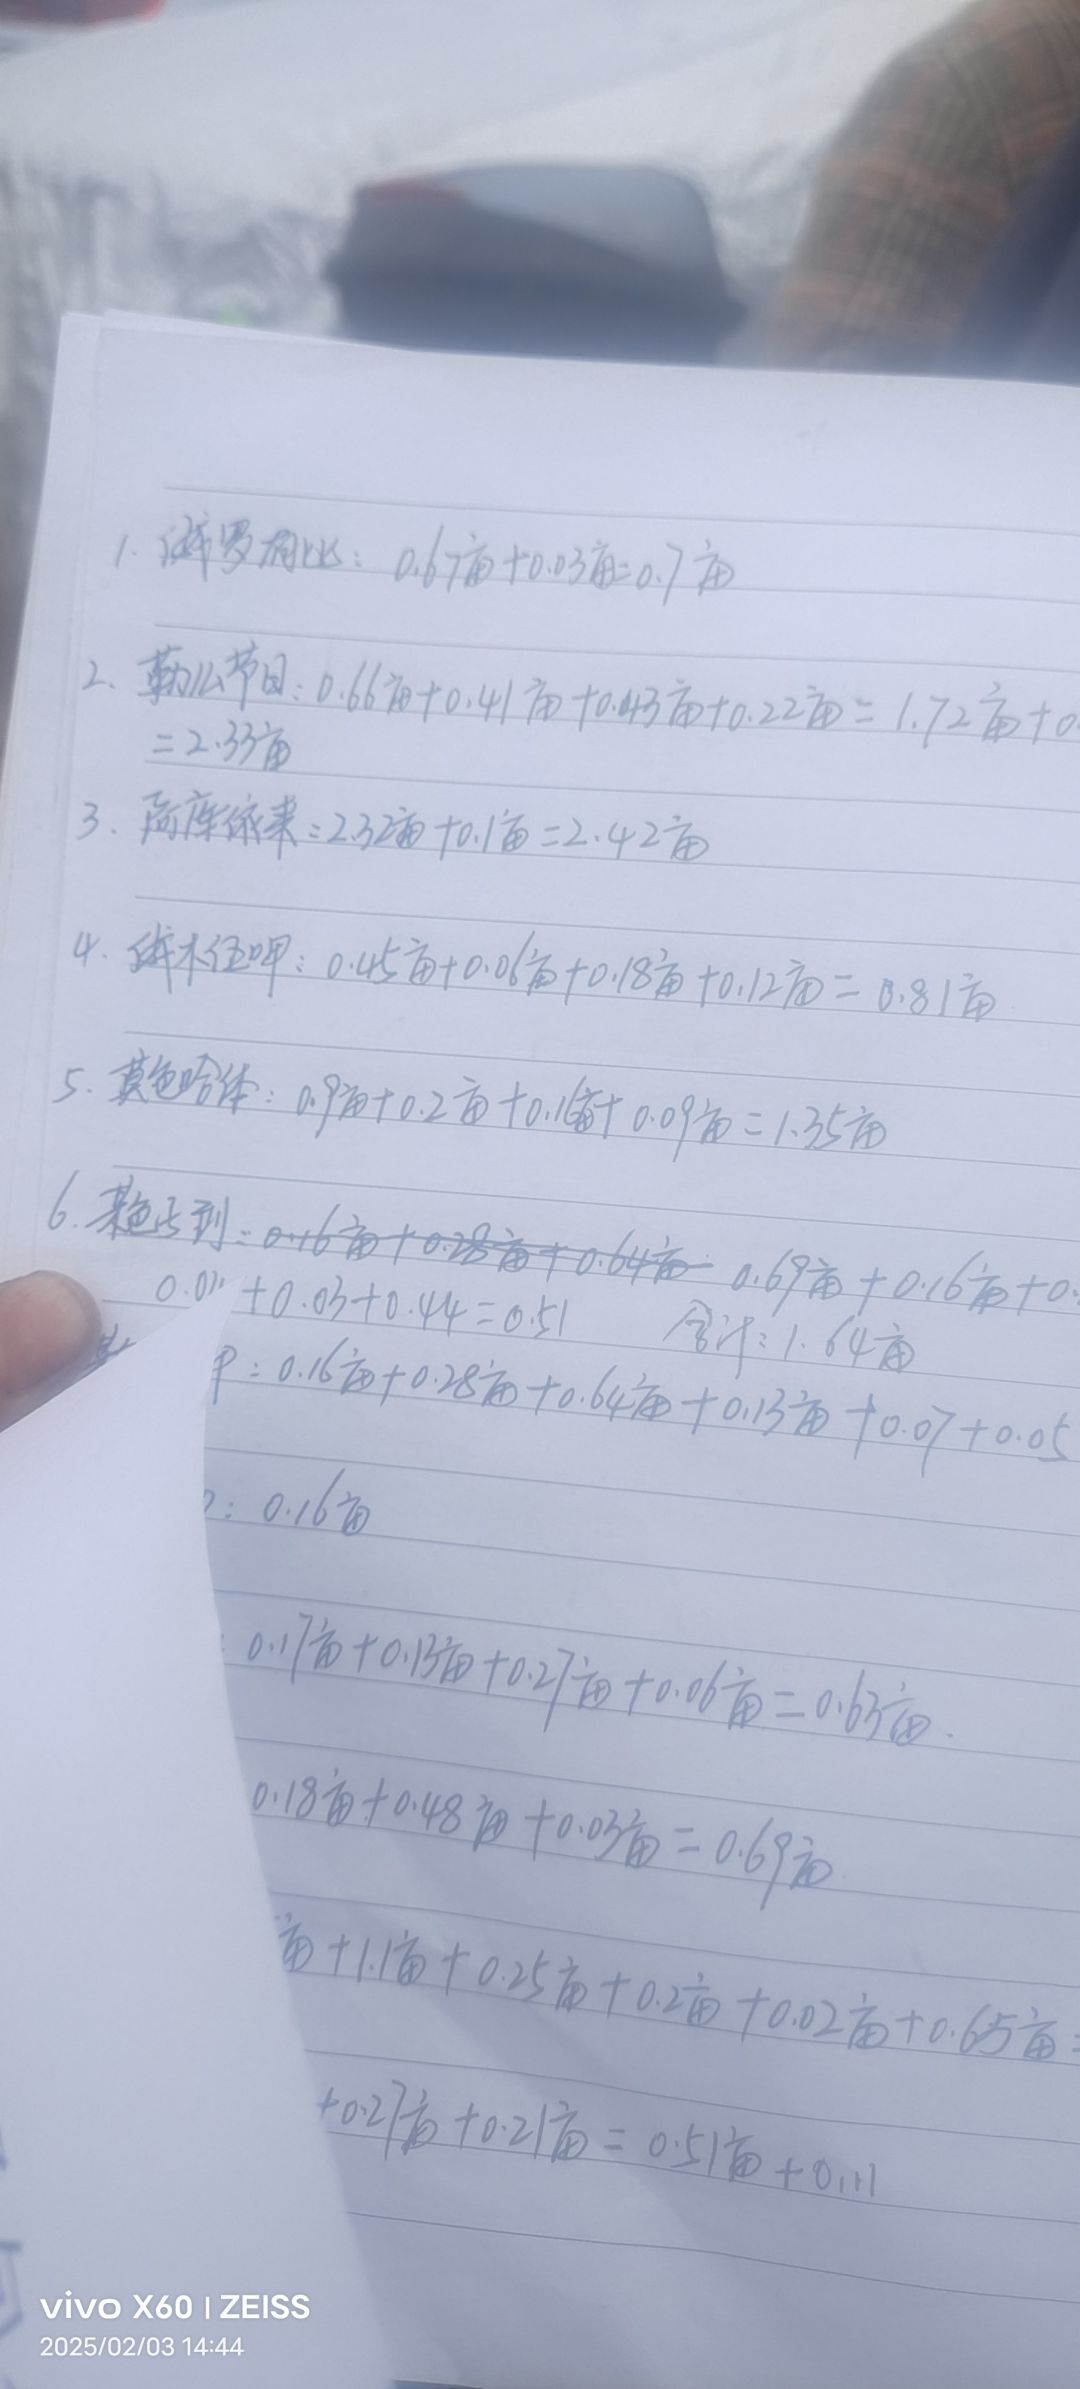 1. 罗 : 0.67亩+0.03亩=0.7亩
2. 勒么节日: 0.66亩+0.41亩+0.43亩+0.22亩=1.72亩+0.
=2.33亩
3. 依来: 2.32亩+0.1亩=2.42亩
4. 木 呷: 0.45亩+0.06亩+0.18亩+0.12亩=0.81亩
5. 莫色哈体: 0.9亩+0.2亩+0.16亩+0.09亩=1.35亩
6. 莫色 到: 0.16亩+0.28亩+0.64亩 0.69亩+0.16亩+0.
+0.03+0.44=0.51 合计:1.64亩
: 0.16亩+0.28亩+0.64亩+0.13亩+0.07+0.05
: 0.16亩
: 0.17亩+0.13亩+0.27亩+0.06亩=0.63亩.
0.18亩+0.48亩+0.03亩=0.69亩.
亩+1.1亩+0.25亩+0.2亩+0.02亩+0.65亩=
+0.27亩+0.21亩=0.51亩+0.11
vivo X60 | ZEISS
2025/02/03 14:44